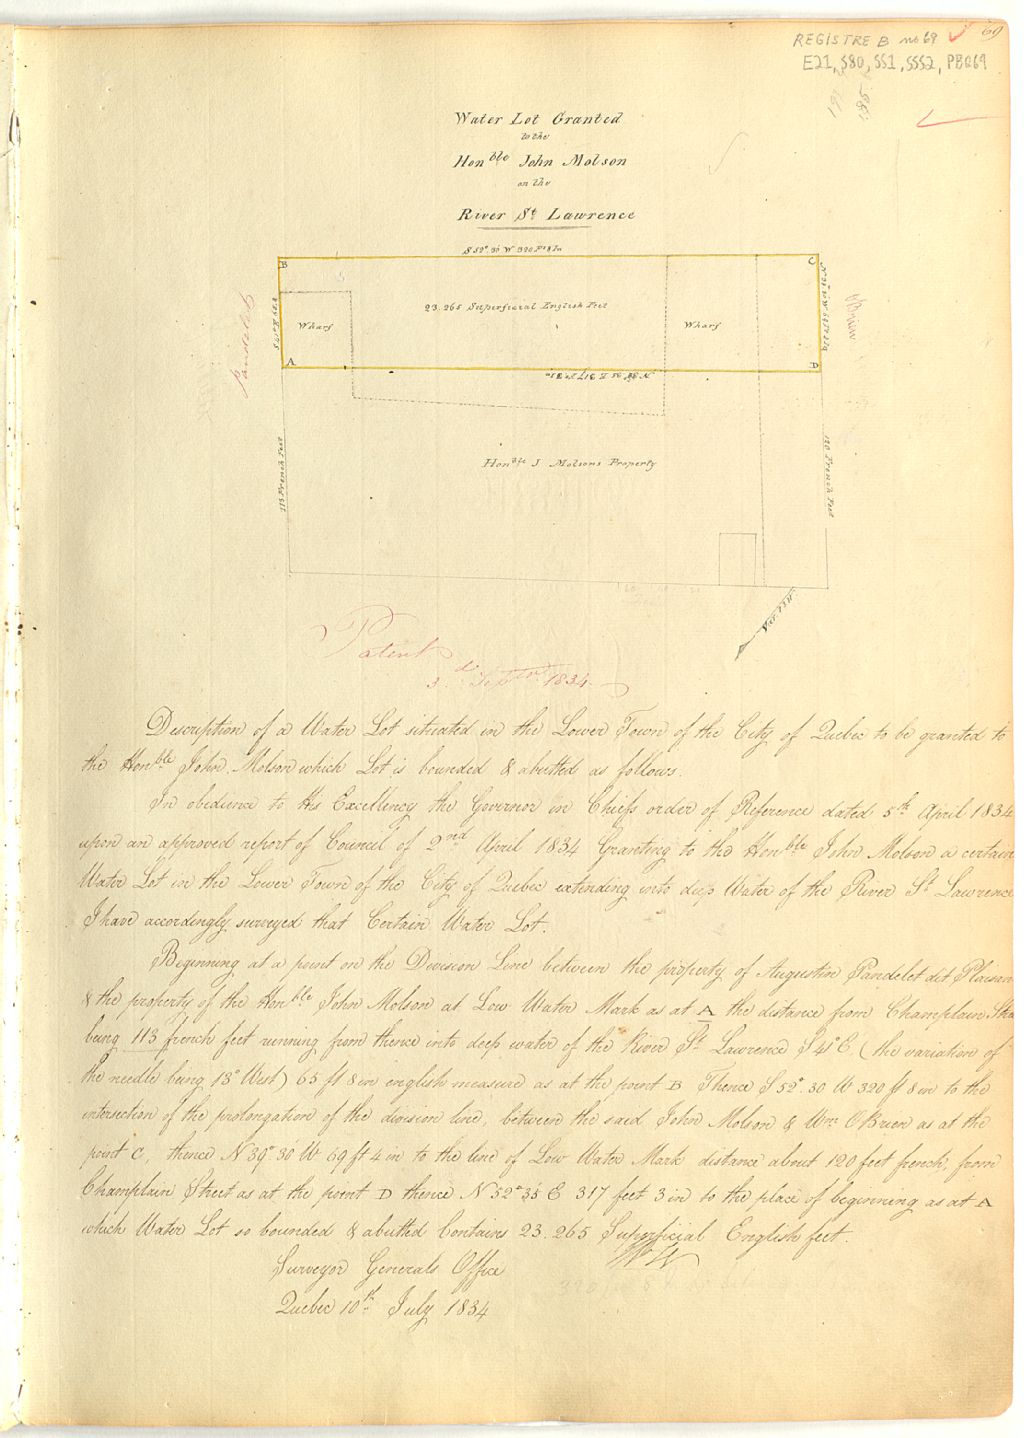 69
REGISTRE B no 69
E21, S80, SS1, SSS2, PB069
Water Lot Granted
to the
Honble John Molson
on the
River St Lawrence
S 52° 30 W 320 Ft 8 In
B
C
23.265 Superficial English Feet
Wharf
Wharf
Pandelet
OBrien
A
D
113 French Feet
120 French Feet
Honble J Molsons Property
Var. 13 W.
Patent
3d Septer 1834
Description of a Water Lot situated in the Lower Town of the City of Quebec to be granted to
the Honble John Molson which Lot is bounded & abutted as follows.
In obedience to His Excellency the Governor in Chiefs order of Reference dated 5th April 1834
upon an approved report of Council of 2nd April 1834 Granting to the Honble John Molson a certain
Water Lot in the Lower Town of the City of Quebec extending into deep Water of the River St Lawrence
I have accordingly surveyed that Certain Water Lot.
Beginning at a point on the Division Line between the property of Augustin Pandelet dit Plaisan
& the property of the Honble John Molson at Low Water Mark as at A the distance from Champlain Stre
being 113 french feet running from thence into deep water of the River St Lawrence S 4° E (the variation of
the needle being 13° West) 65 ft 8 in english measure as at the point B Thence S 52°. 30 W 320 ft 8 in to the
intersection of the prolongation of the division line, between the said John Molson & Wm OBrien as at the
point C, thence N 39° 30' W 69 ft 4 in to the line of Low Water Mark distance about 120 feet french, from
Champlain Street as at the point D thence N 52° 35 E 317 feet 3 in to the place of beginning as at A
which Water Lot so bounded & abutted Contains 23.265 Superficial English feet.
Surveyor Generals Office
Quebec 10th July 1834